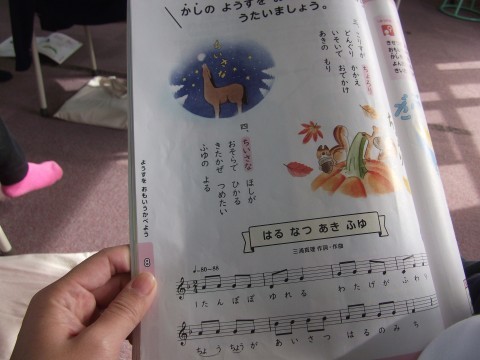 かしの ようすを
うたいましょう。
こりすが
どんぐり かかえ
いそいで おでかけ
あきの もり
ちいさな
四、ちいさな ほしが
おそらで ひかる
きたかぜ つめたい
ふゆの よる
ようすを おもいうかべよう
8
はる なつ あき ふゆ
三浦真理 作詞・作曲
♩=80~88
1 たんぽぽ ゆれる わたげが ふわ
ちょうちょうが あいさつ はるのみち